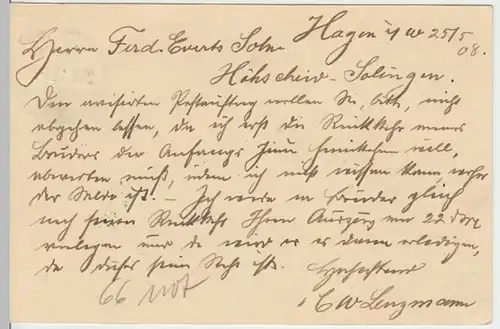 Hagen i/W 25/5 08.
Herrn Ferd. Everts Sohn
Höhscheid-Solingen.
Den avisirten Postauftrag wollen Sie, bitte, nicht
abgehen lassen, da ich erst die Rückkehr meines
Bruders der Anfangs Juni heimkehren will,
abwarten muß, indem ich nicht wissen kann woher
der Saldo ist. – Ich werde m Bruder gleich
nach seiner Rückkehr Ihren Auszug vom 22 d
vorlegen und da wird er es dann erledigen,
da dieses seine Sache ist.
Hochachtend
C W Lenzmann
66 not